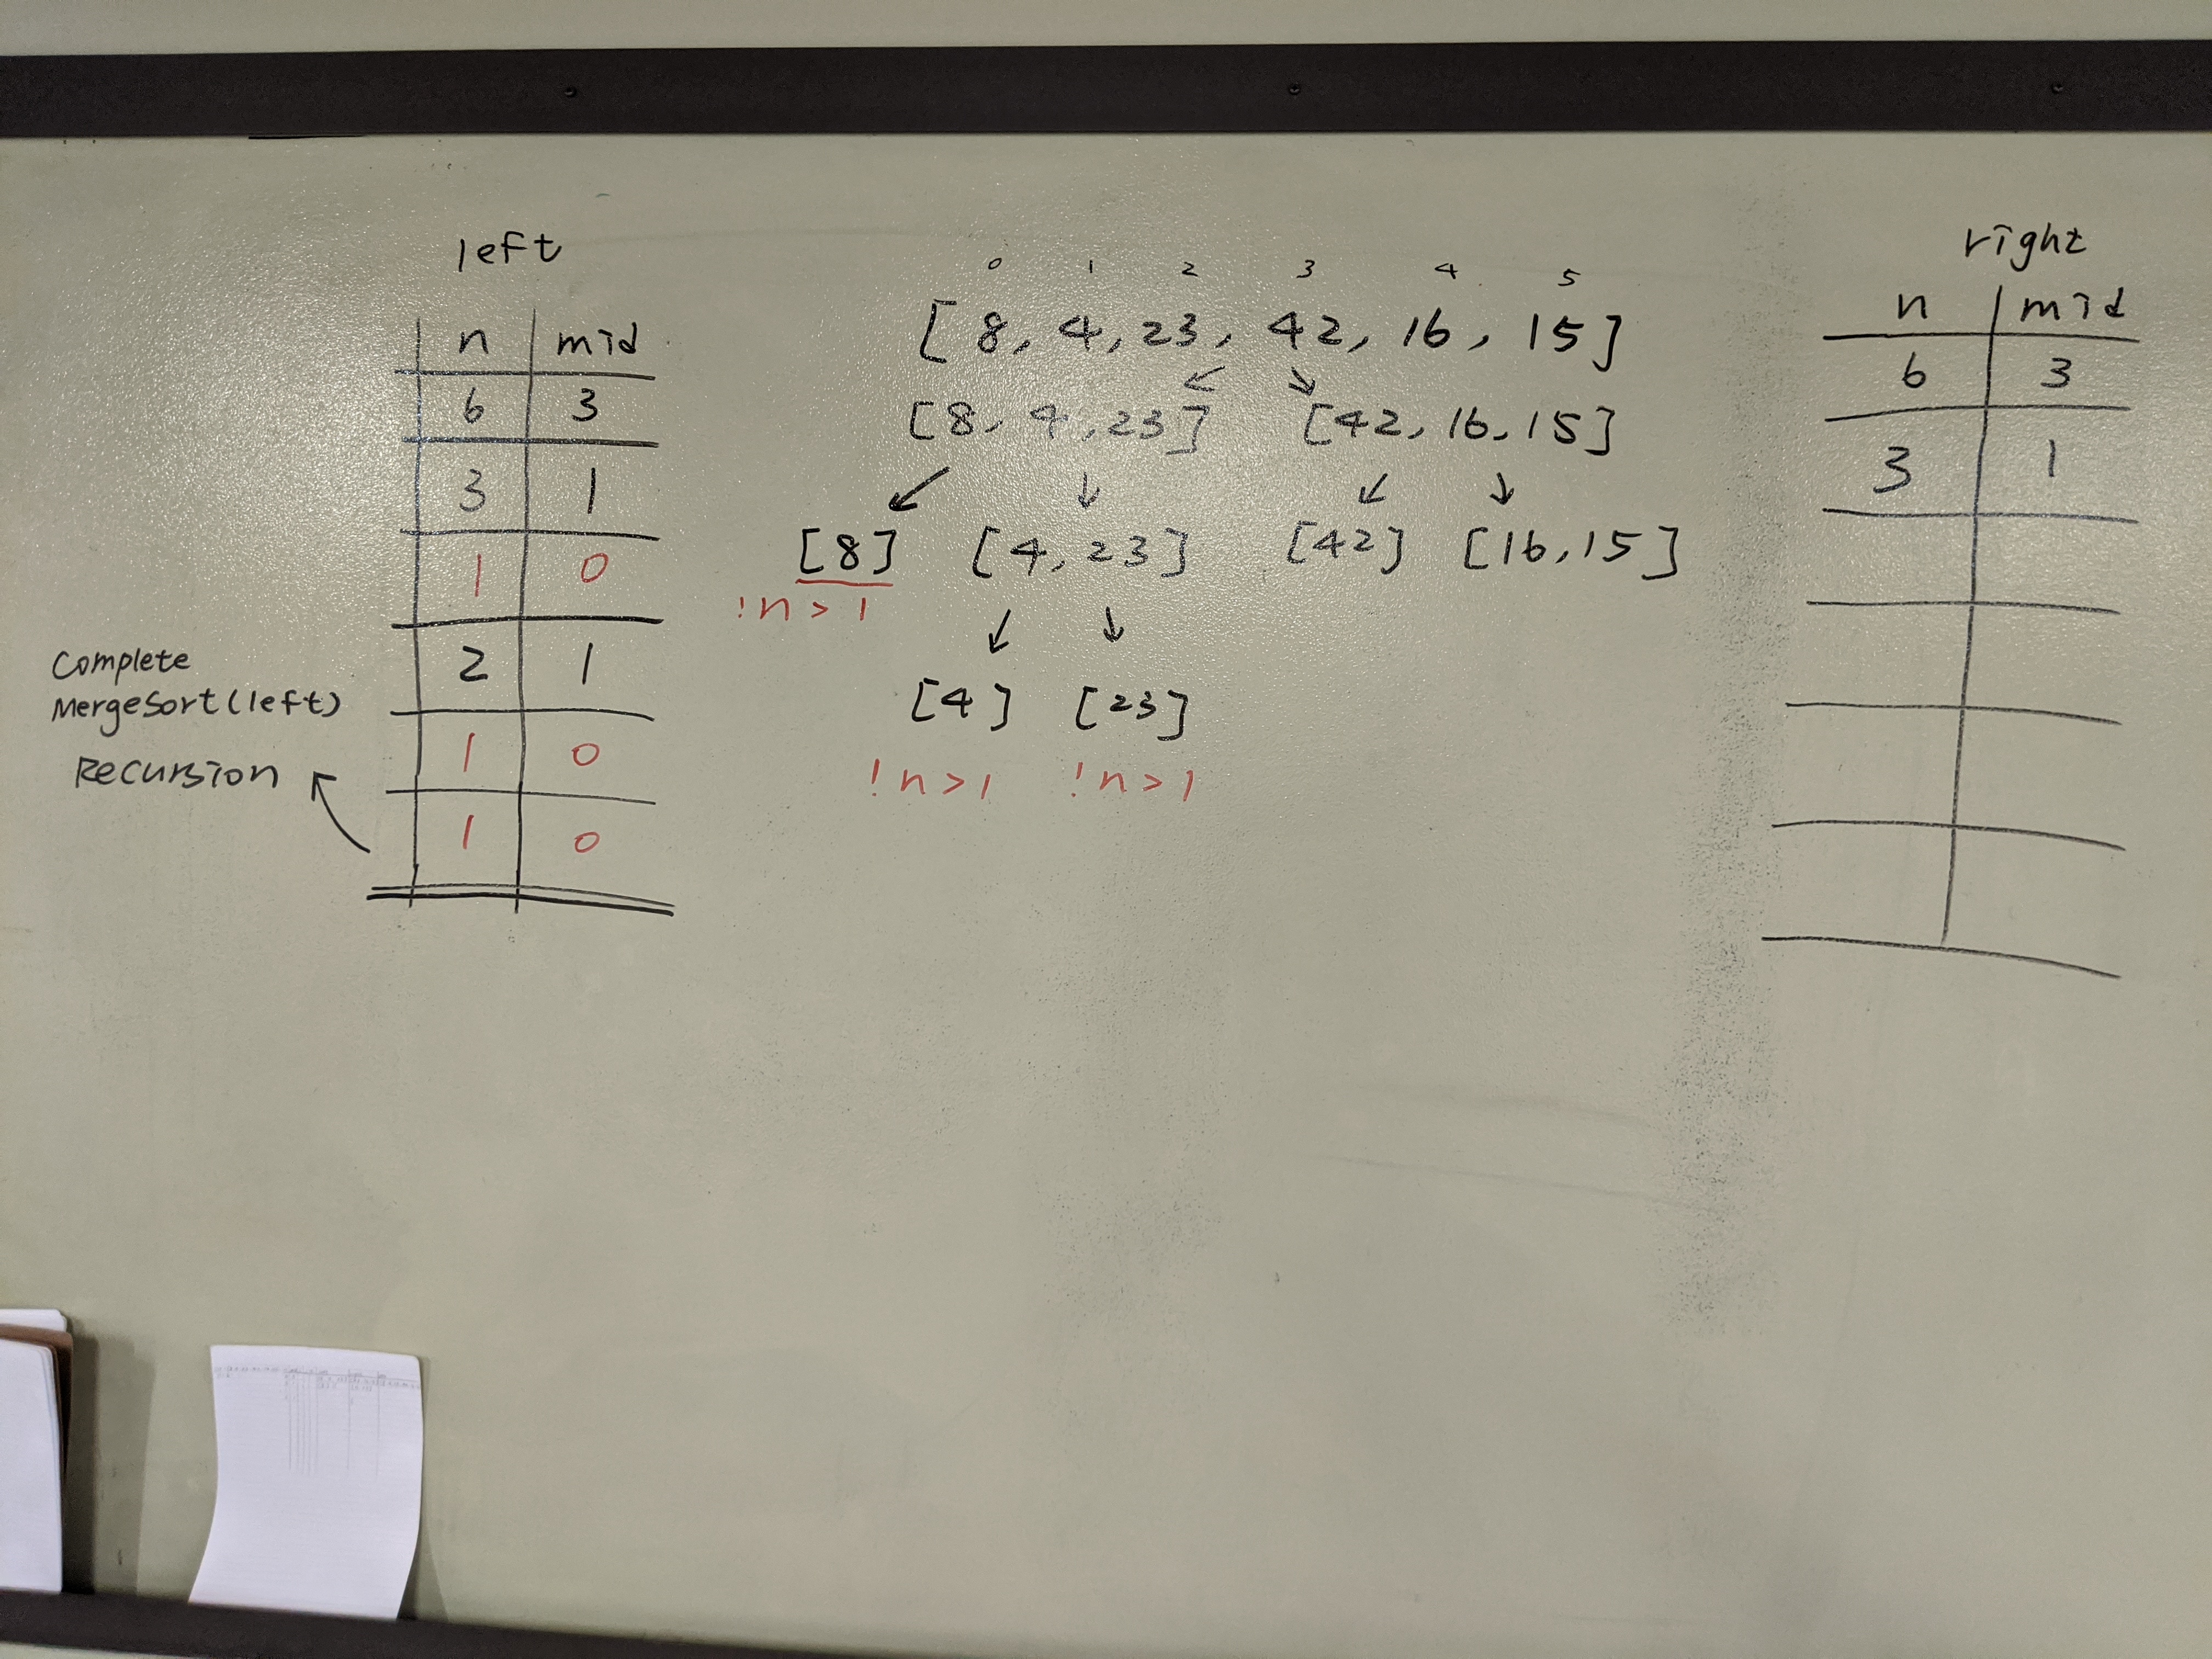 left
n mid
6 3
3 1
1 0
2 1
1 0
1 0
Complete
MergeSort(left)
Recursion
0 1 2 3 4 5
[8, 4, 23, 42, 16, 15]
[8, 4, 23] [42, 16, 15]
[8] [4, 23] [42] [16, 15]
!n > 1
[4] [23]
!n > 1 !n > 1
right
n mid
6 3
3 1